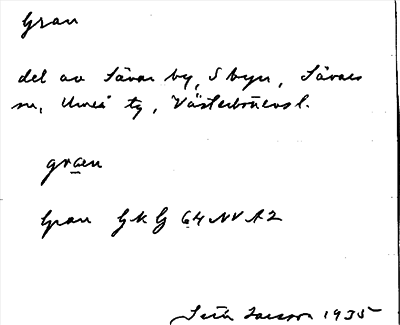 Gran
del av Sävar by, S byn, Sävars
sn, Umeå tg, Västerbottens l.
gran
Gran GKG 64 NV A2
Larsson 1935